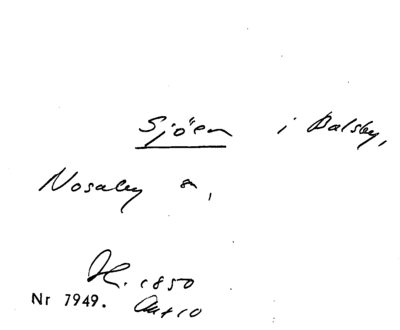 Sjöen i Balsby,
Nosaby sn,
H. 1850
Nr 7949. Ant 10